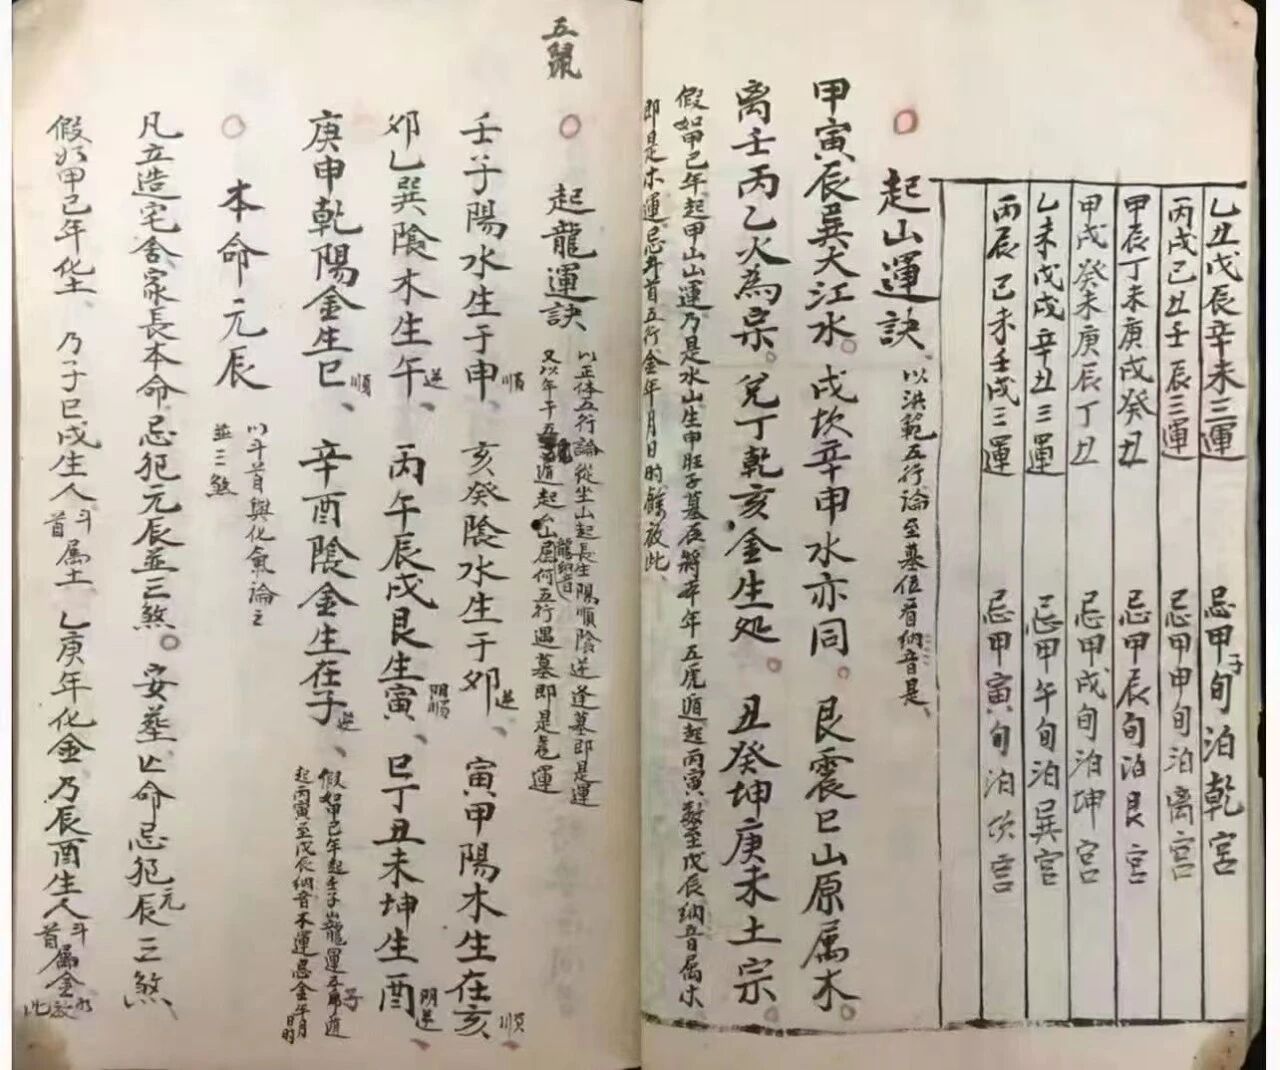 乙丑戊辰辛未三運 忌甲子旬泊乾宮
丙戌己丑壬辰三運 忌甲申旬泊离宮
甲辰丁未庚戌癸丑 忌甲辰旬泊艮宮
甲戌癸未庚辰丁丑 忌甲戌旬泊坤宮
乙未戊戌辛丑三運 忌甲午旬泊巽宮
丙辰己未壬戌三運 忌甲寅旬泊坎宮
起山運訣、以洪範五行論至墓位看納音是、
甲寅辰巽大江水。戌坎辛申水亦同。艮震巳山原属木。
离壬丙乙火為宗。兌丁乾亥金生処。丑癸坤庚未土宗。
假如甲己年起甲山山運乃是水山生申旺子墓辰將本年五虎遁起丙寅数至戊辰納音属木
即是木運忌年首五行金年月日时餘放此、
五鼠
起龍運訣、以正体五行論從坐山起長生陽順陰逆逢墓即是運
又以年干五鼠遁起坐山屬何五行遇墓即是龍運
龍納音
壬子陽水生于申順、亥癸陰水生于卯逆、寅甲陽木生在亥順、
卯乙巽陰木生午逆、丙午辰戌艮生寅陽順、巳丁丑未坤生酉陰逆、
庚申乾陽金生巳順、辛酉陰金生在子逆、假如甲己年起壬子山龍運五鼠子遁
起丙寅至戊辰納音木運忌金年月日时
本命元辰 以斗首與化氣論之
並三煞
凡立造宅舍家長本命忌犯元辰並三煞。安葬亡命忌犯元辰三煞
假如甲己年化土、乃子巳戌生人斗首属土、乙庚年化金乃辰酉生人斗首属金餘放此